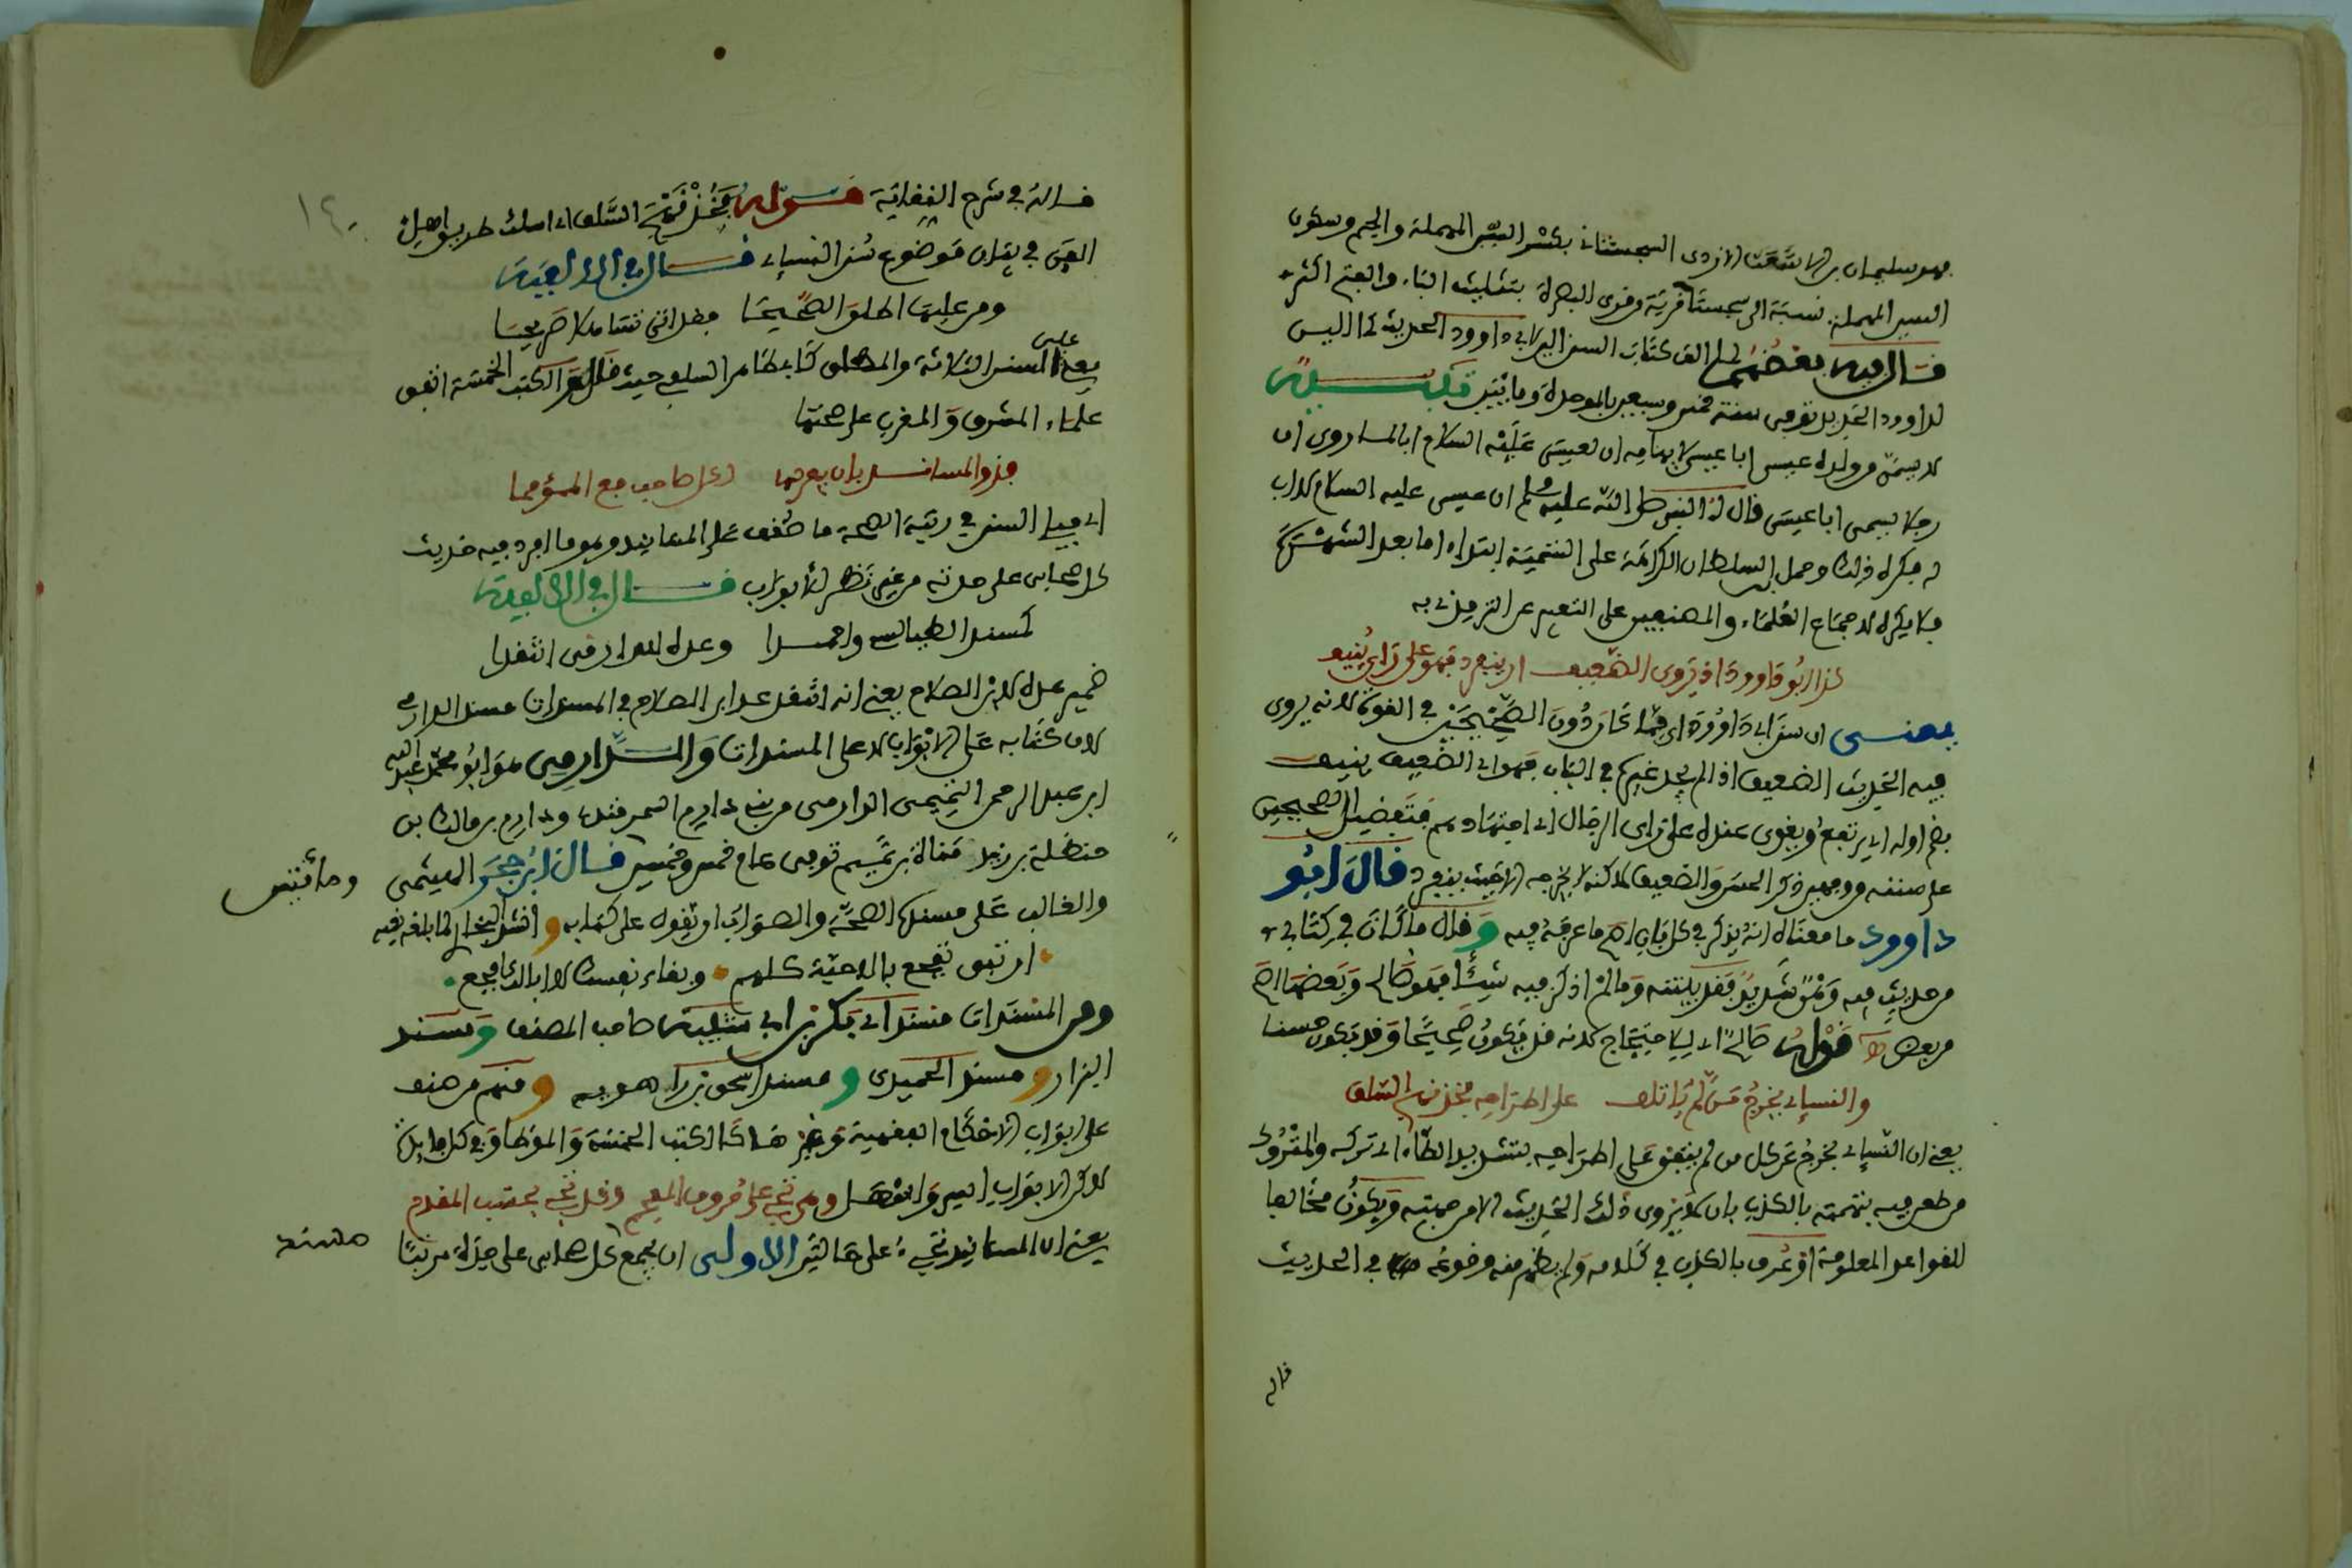 وهو سليمان بن الاشعث الازدى السجستانى بكسر السين المهملة والجيم وسكون
السين المهملة نسبة الى سجستان قرية من قرى البصرة بتثليث الباء والفتح اكثر
قال فيه بعضهم لما الف كتاب السنن الين لابى داوود الحديث كما الين
لداوود الحديد توفى سنة خمس وسبعين بالموحدة ومايتين تكميل
لا يسمى من ولده عيسى ابا عيسى لايهامه ان لعيسى عليه السلام ابا لما روى ان
رجلا يسمى ابا عيسى قال له النبى صلى الله عليه وسلم ان عيسى عليه السلام لا اب
له فكره ذلك وحمل السلطان الكراهة على التسمية ابتداء اما بعد الشهرة
فلا يكره لاجماع العلماء والمصنفين على التعبير عن الترمذى به
كذا ابو داوود اذ يروى الضعيف ان ينفرد فهو على راى ينيف
يعنى ان سنن ابى داوود اى فيما كان دون الصحيحين فى القوة لانه يروى
فيه الحديث الضعيف اذا لم يجد غيره فى الباب فهو اى الضعيف ينيف
بضم اوله اى يرتفع ويقوى عنده على راى الرجال اى اجتهادهم فتفضيل الصحيحين
على سننه من وجهين ذكر الحسن والضعيف لاكنه لا يخرجه الا حيث ينفرد قال ابو
داوود ما معناه انه يذكر فى كل باب اصح ما عرفه فيه وقال ما كان فى كتابى
من حديث فيه وهن شديد فقد بينته وما لم اذكر فيه شيئا فهو صالح وبعضها اصح
من بعض قوله صالح اى للاحتجاج لانه قد يكون صحيحا وقد يكون حسنا
والنسائى يخرج من لم ياتلف على اطراحه فخذ نهج السلف
يعنى ان النسائى يخرج عن كل من لم يتفق على اطراحه بتشديد الطاء اى تركه والمتروك
من طعن فيه بتهمته بالكذب بان لا يروى ذلك الحديث الا من جهته ويكون مخالفا
للقواعد المعلومة او عرف بالكذب فى كلامه ولم يظهر منه وقوعه فى الحديث
قاله
١٤٠
قاله فى شرح النقاية قوله فخذ نهج السلف اى اسلك طريق اهل
الفن فى بيان موضوع سنن النسائى قال فى الالفية
ومن عليها اطلق الصحيحا فقد اتى تساهلا صريحا
يعنى على السنن الثلاثة والمطلق كابى طاهر السلفى حيث قال فى الكتب الخمسة اتفق
علماء المشرق والمغرب على صحتها
فذو المساند بان يعرفها لكل صاحب مع المؤهما
اى فيلى السنن فى رتبة الصحة ما صنف على المسانيد وهو ما افرد فيه حديث
كل صحابى على حدته من غير نظر لابواب قال فى الالفية
كمسند الطيالسى واحمدا وعده للدارمى انتقدا
ضمير عده لابن الصلاح يعنى انه انتقد على ابن الصلاح فى المسندات مسند الدارمى
لان كتابه على الابواب لا على المسندات والدارمى هو ابو محمد عبد الله
ابن عبد الرحمن التميمى الدارمى من بنى دارم السمرقندى ودارم بن مالك بن
حنظلة بن زيد مناة بن تميم توفى عام خمس وخمسين قال ابن حجر الهيثمى
ومائتين
والغالب على مسنده الصحة والصواب ان يقوله على كتابه وانشد البخارى لما بلغه نعيه
ان تبق تفجع بالاحبة كلهم وبقاء نفسك لا ابالك افجع
ومن المسندات مسند ابى بكر بن ابى شيبة صاحب المصنف ومسند
البزار ومسند الحميدى ومسند اسحق بن راهويه ومنهم من صنف
على ابواب الاحكام الفقهية وغيرها كالكتب الخمسة والموطا وفى كل فايدة
لاكن الابواب ايسر وافضل ومن تجى على حروف المعجم وقد تجى بحسب المقدم
يعنى ان المسانيد تجىء على حالتين الاولى ان يجمع كل صحابى على حدة مرتبا
مسند